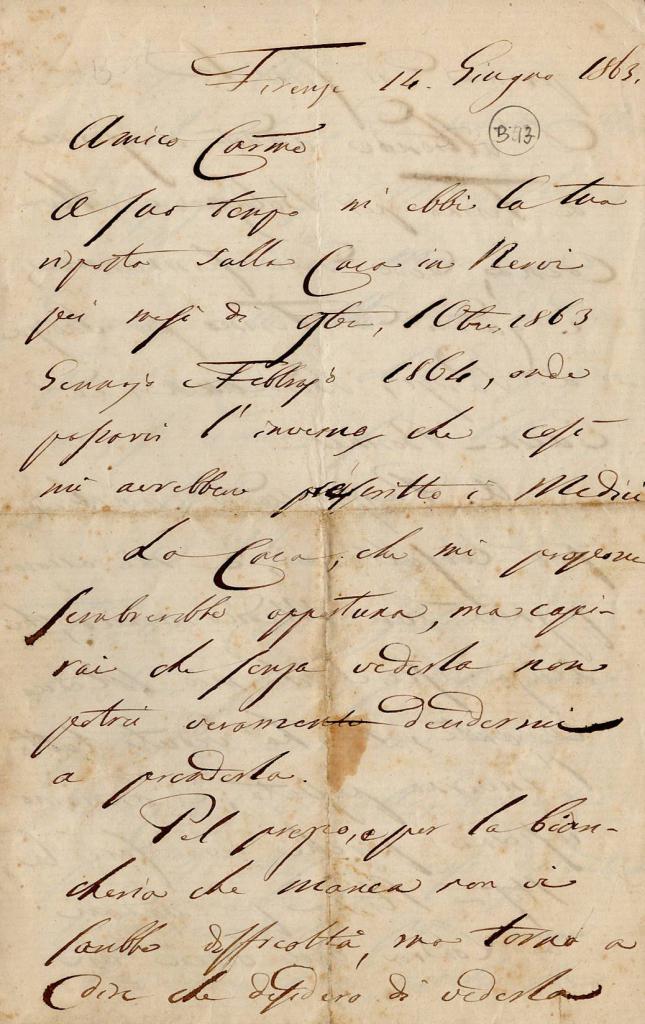 Firenze 14. Giugno 1863.
B 93
Amico Carmo
A suo tempo m'ebbi la tua
risposta sulla Casa in Nervi
pei mesi di 9bre, 10bre, 1863
Gennajo Febbrajo 1864, onde
passarvi l'inverno, che così
mi avrebbero prescritto i Medici
La Casa, che mi proponi
sembrerebbe opportuna, ma capi-
rai che senza vederla non
potrei veramente decidermi
a prenderla.
Pel prezzo, e per la bian-
cheria che manca non vi
sarebbe difficoltà, ma torno a
dire che desidero di vederla